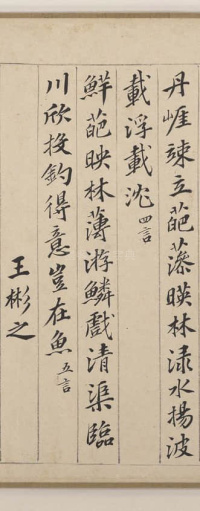 丹崖竦立葩藻暎林渌水揚波
載浮載沈四言
鮮葩暎林薄游鱗戲清渠臨
川欣投釣得意豈在魚五言
王彬之